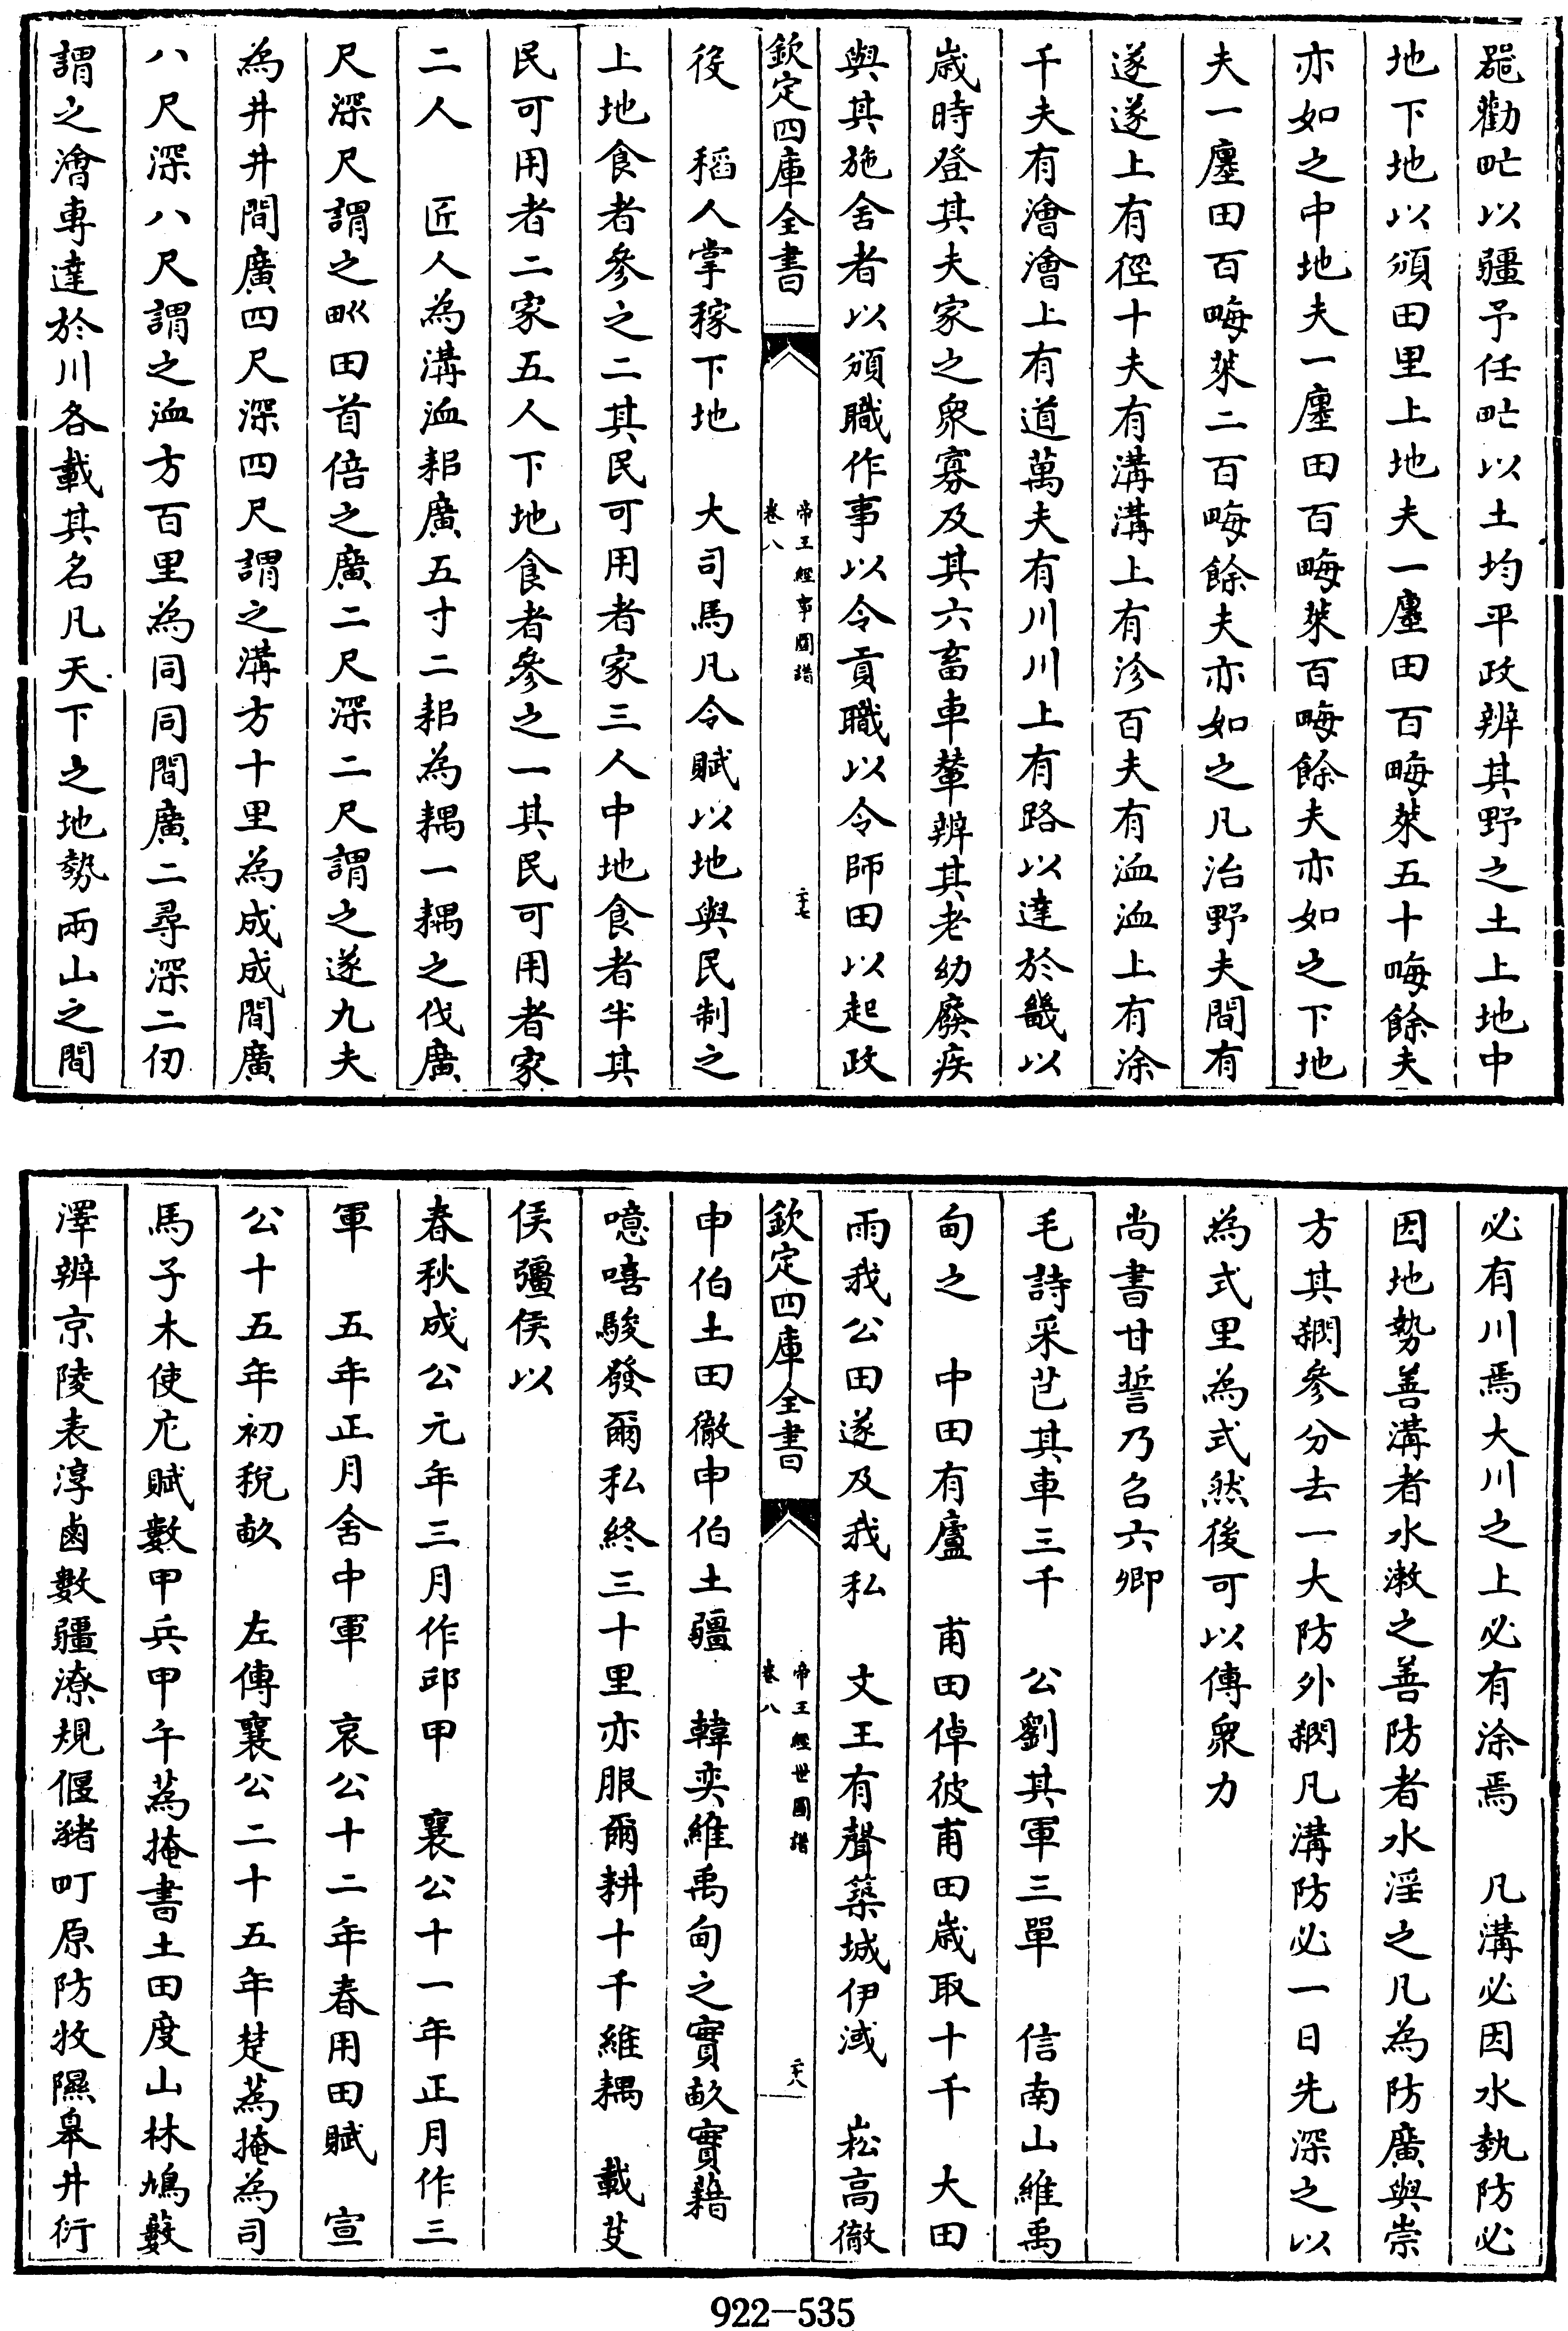 噐勸甿以疆予任甿以土均平政辨其野之土上地中
地下地以頒田里上地夫一廛田百畮萊五十畮餘夫
亦如之中地夫一廛田百畮萊百畮餘夫亦如之下地
夫一廛田百畮萊二百畮餘夫亦如之凡治野夫間有
遂遂上有徑十夫有溝溝上有沴百夫有洫洫上有涂
千夫有澮澮上有道萬夫有川川上有路以達於畿以
嵗時登其夫家之衆寡及其六畜車輦辨其老幼廢疾
與其施舍者以頒職作事以令貢職以令師田以起政
欽定四庫全書
帝王經世圖譜
卷八
二十七
役　稻人掌稼下地　大司馬凡令賦以地與民制之
上地食者參之二其民可用者家三人中地食者半其
民可用者二家五人下地食者參之一其民可用者家
二人　匠人為溝洫耜廣五寸二耜為耦一耦之伐廣
尺深尺謂之𤰕田首倍之廣二尺深二尺謂之遂九夫
為井井間廣四尺深四尺謂之溝方十里為成成間廣
八尺深八尺謂之洫方百里為同同間廣二尋深二仞
謂之澮專達於川各載其名凡天下之地勢兩山之間
必有川焉大川之上必有涂焉　凡溝必因水埶防必
因地勢善溝者水漱之善防者水淫之凡為防廣與崇
方其𥻦參分去一大防外𥻦凡溝防必一日先深之以
為式里為式然後可以傅衆力
尚書甘誓乃召六卿
毛詩采芑其車三千　公劉其軍三單　信南山維禹
甸之　中田有廬　甫田倬彼甫田嵗取十千　大田
雨我公田遂及我私　文王有聲築城伊淢　崧高徹
欽定四庫全書
帝王經世圖譜
卷八
二十八
申伯土田徹申伯土疆　韓奕維禹甸之實畝實籍
噫嘻駿發爾私終三十里亦服爾耕十千維耦　載芟
侯彊侯以
春秋成公元年三月作邱甲　襄公十一年正月作三
軍　五年正月舍中軍　哀公十二年春用田賦　宣
公十五年初稅畝　左傳襄公二十五年楚蒍掩為司
馬子木使庀賦數甲兵甲午蒍掩書土田度山林鳩藪
澤辨京陵表淳鹵數疆潦規偃豬町原防牧隰皋井衍
922—535